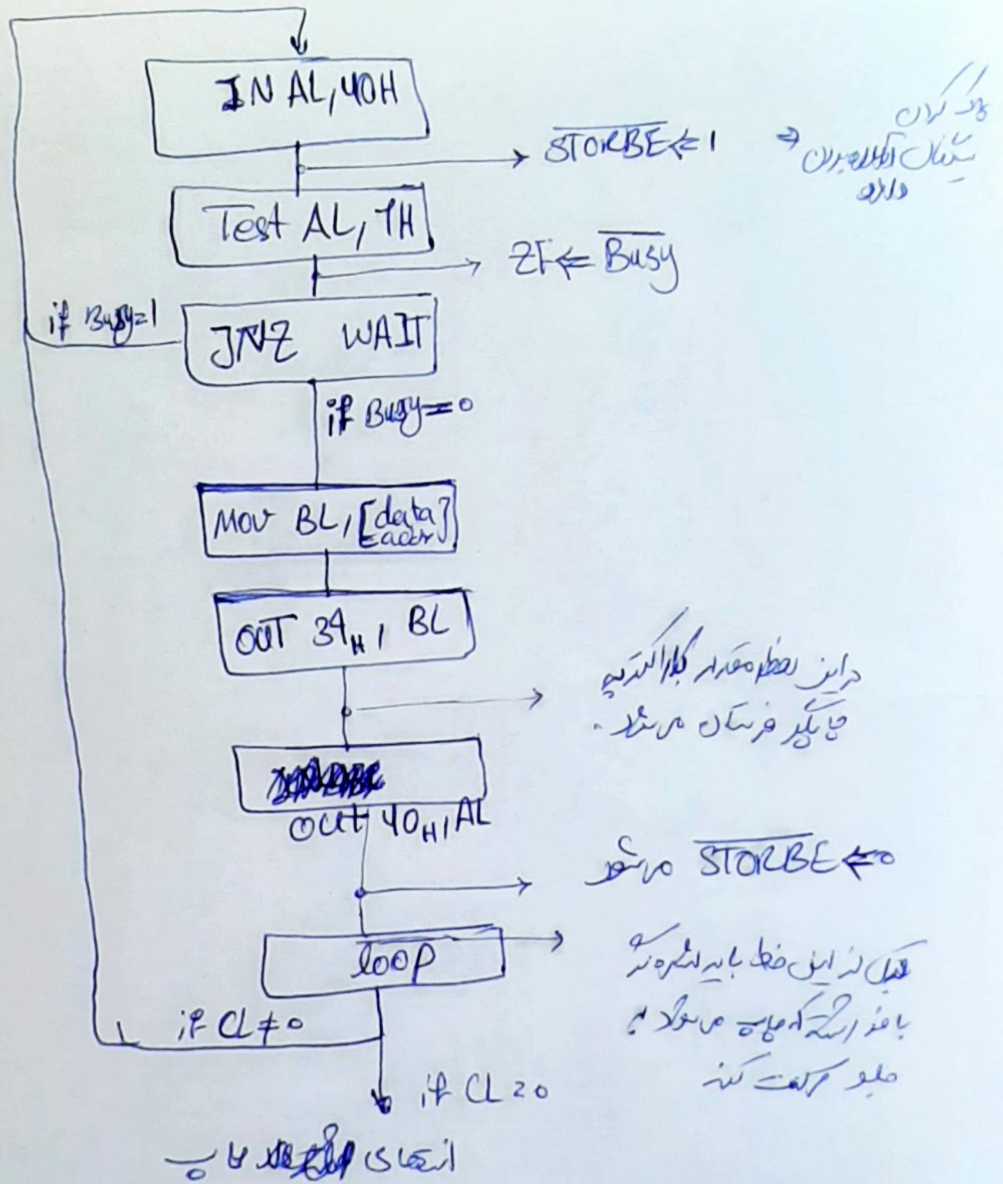 IN AL, 40H
STORBE ⇐ 1 ⇒
چک کردن
سیگنال
دارد
Test AL, 1H
ZF ⇐ Busy
if Busy=1
JNZ WAIT
if Busy=0
MOV BL, [data addr]
OUT 34H, BL
در این لحظه مقدار کاراکتر به
فرستاده می‌شود.
out 40H, AL
STORBE ⇐ 0 می‌شود
loop
این خط باید
که چاپ می‌شود به
جلو حرکت کند
if CL ≠ 0
if CL = 0
انتهای چاپ